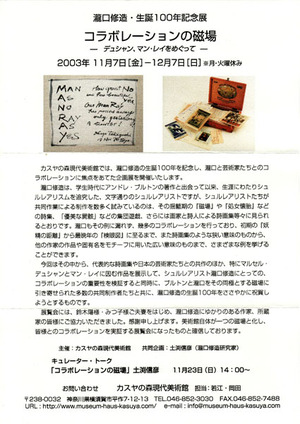 瀧口修造・生誕100年記念展
コラボレーションの磁場
― デュシャン、マン・レイをめぐって ―
2003年 11月7日[金]－12月7日[日] ※月・火曜休み
MAN
AS
NO
RAY
AS
YES
カスヤの森現代美術館では、瀧口修造の生誕100年を記念し、瀧口と芸術家たちとのコ
ラボレーションに焦点をあてた企画展を開催いたします。
瀧口修造は、学生時代にアンドレ・ブルトンの著作と出会って以来、生涯にわたりシュ
ルレアリスムを追究した、文字通りのシュルレアリストですが、シュルレアリストたちが
共同作業による制作を数多く試みているのは、その揺籃期の『磁場』や『処女懐胎』など
の詩集、「優美な屍骸」などの集団遊戯、さらには画家と詩人による詩画集等々に見られ
るとおりです。瀧口もその例に漏れず、幾多のコラボレーションを行っており、初期の『妖
精の距離』から最晩年の『検眼図』に至るまで、また詩画集のような狭い意味のものから、
他の作家の作品や固有名をモチーフに用いた広い意味のものまで、さまざまな例を挙げる
ことができます。
今回はその中から、代表的な詩画集や日本の芸術家たちとの共作のほか、特にマルセル・
デュシャンとマン・レイに因む作品を展示して、シュルレアリスト瀧口修造にとっての、
コラボレーションの重要性を検証すると同時に、ブルトンと瀧口をその両極とする磁場に
引き寄せられた多数の共同制作者たちと共に、瀧口修造の生誕100年をささやかに祝賀し
ようとするものです。
展覧会には、鈴木陽様・みつ子様ご夫妻をはじめ、瀧口修造にゆかりのある作家、所蔵
家の皆様にご協力いただきました。感謝申し上げます。美術館自体が一つの磁場と化し、
皆様とのコラボレーションを実証する展覧会になったものと確信しております。
主催：カスヤの森現代美術館 共同企画：土渕信彦（瀧口修造研究家）
キュレーター・トーク
「コラボレーションの磁場」土渕信彦 11月23日(日) 14：00～
お問い合わせ カスヤの森現代美術館 担当：若江・岡田
〒238-0032 神奈川県横須賀市平作7-12-13 TEL.046-852-3030 FAX.046-852-7488
URL : http://www.museum-haus-kasuya.com/ e-mail : info@museum-haus-kasuya.com